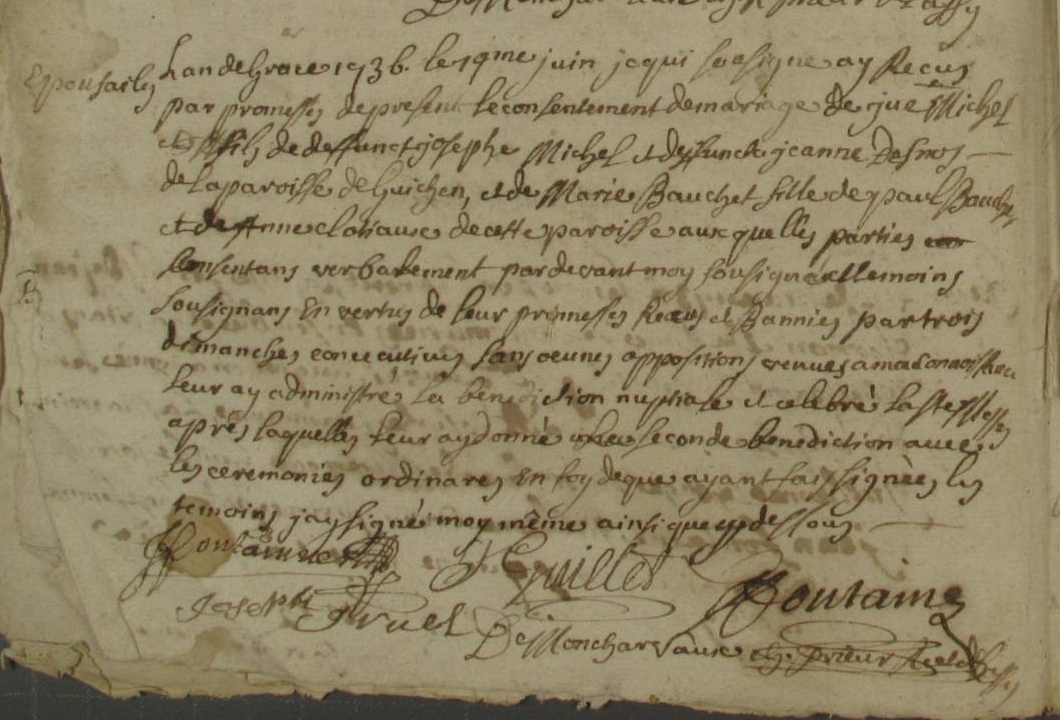 Epousailles
L'an de Grace 1736. le 19me juin je qui sousigne ay Reçeu
par promesses de present le consentement de mariage de Michel
fils de deffunct josephe Michel et deffuncte jeanne Desnos
de la paroisse de Guichen, et de Marie Bauchet fille de paul Bauchet
et de Anne de cette paroisse auxquelles parties
consentans verbalement par devant moy temoins
sousignans En vertus de leur promesses Receus et Bannies par trois
dimanches consecutives sans oppositions venues a ma connoissance
leur ay administré la benediction nuptiale et celebré la ste Messe
après laquelles leur ay donné seconde benediction avec
les ceremonies ordinares En foy de que ayant fais signées les
temoins jay signé moy même ainsi que cy dessous
Fontaine
Guillet
Fontaine
Joseph Gruel
De Moncharvaux ch. prieur R.